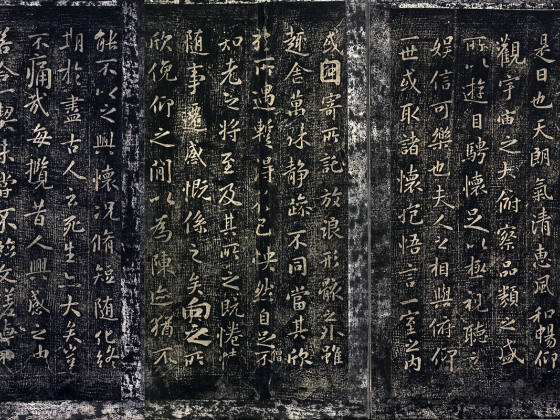 是日也天朗氣清惠風和暢仰
觀宇宙之大俯察品類之盛
所以遊目騁懷足以極視聽之
娛信可樂也夫人之相與俯仰
一世或取諸懷抱悟言一室之內
或因寄所託放浪形骸之外雖
趣舍萬殊靜躁不同當其欣
於所遇蹔得於己怏然自足不
知老之將至及其所之既惓情
隨事遷感慨係之矣向之所
欣俛仰之間以為陳迹猶不
能不以之興懷況脩短隨化終
期於盡古人云死生亦大矣豈
不痛哉每攬昔人興感之由
若合一契未嘗不臨文嗟悼